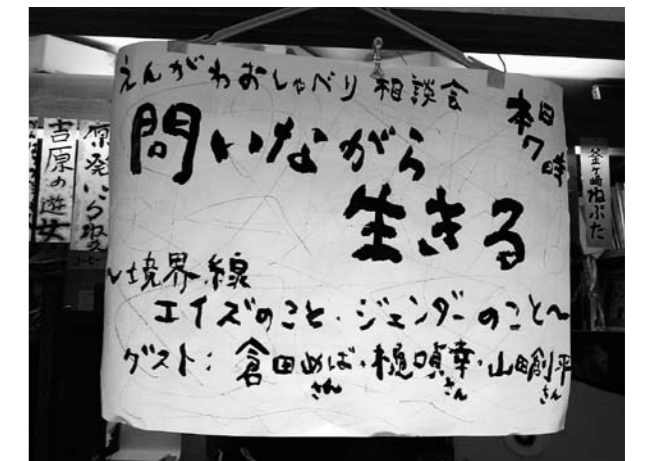 えんがわおしゃべり相談会
本日
7時
問いながら
生きる
～境界線
エイズのこと・ジェンダーのこと～
ゲスト：倉田めばさん・樋口貞幸さん・山田創平さん
吉原の遊女
原発いらねえ
コーヒー
釜ヶ崎ねぷた